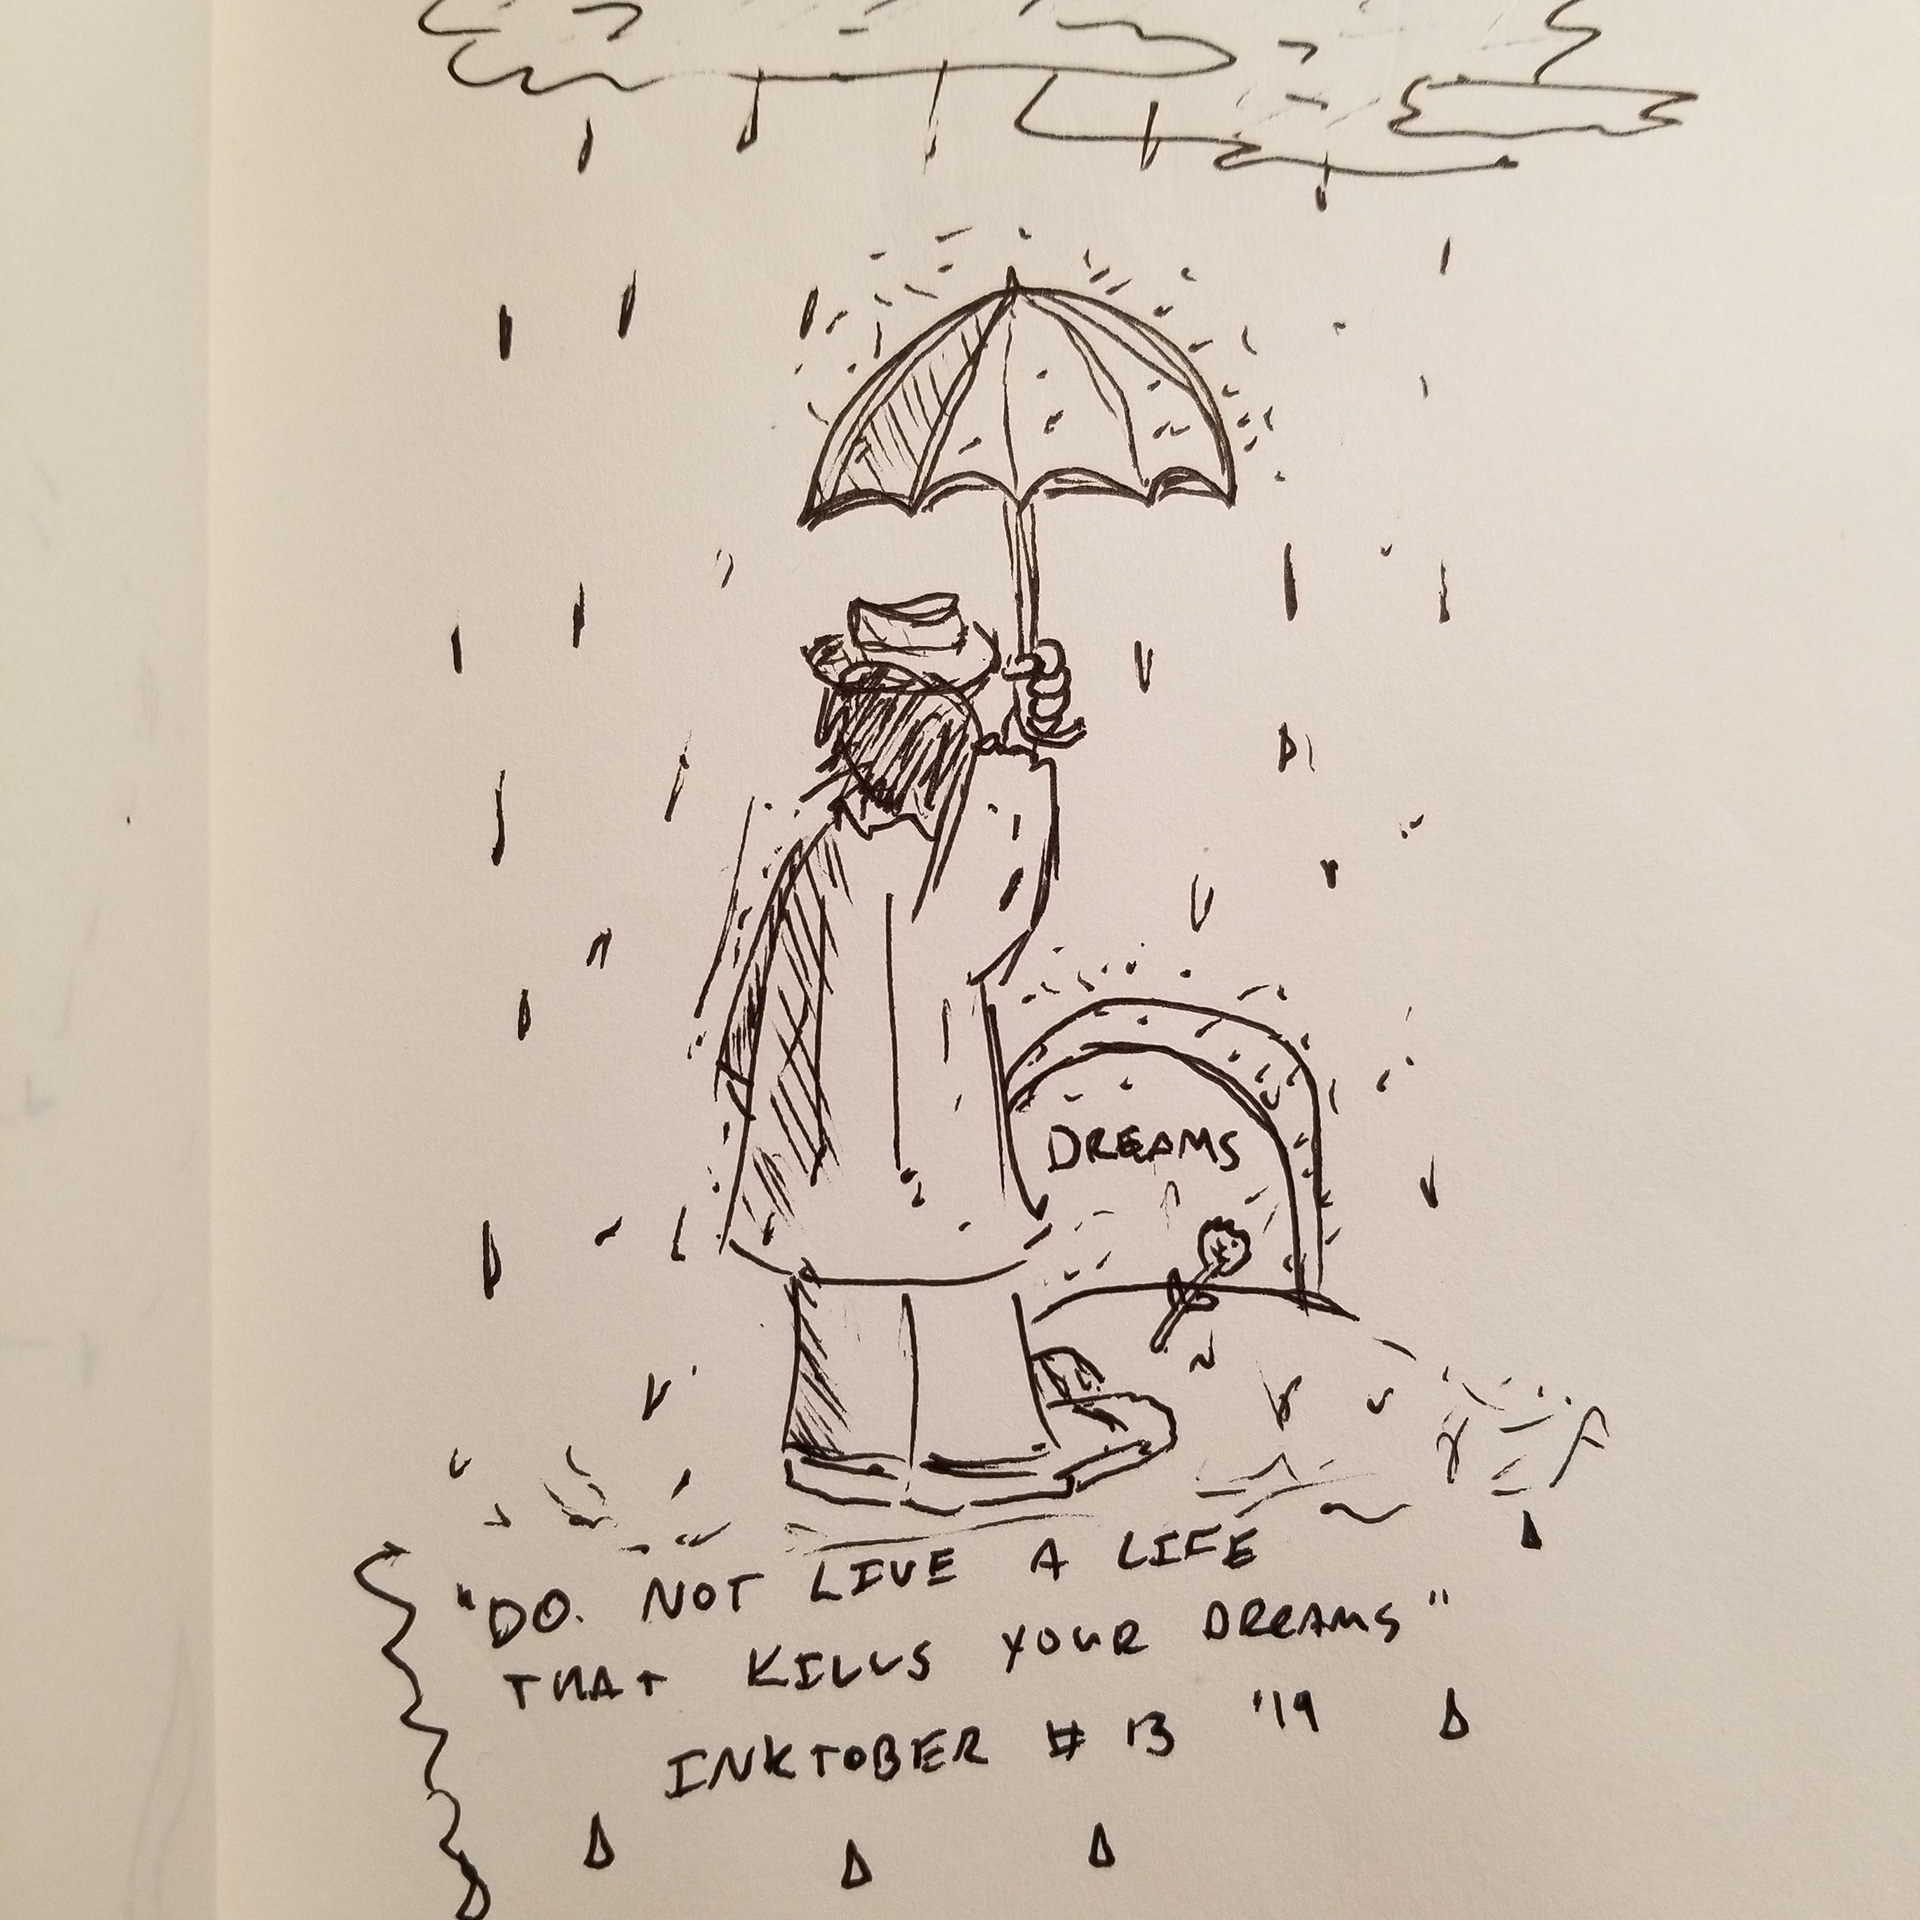 DREAMS
"DO. NOT LIVE A LIFE
THAT KILLS YOUR DREAMS"
INKTOBER # 13 '19